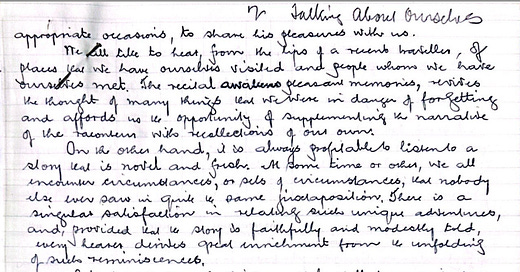 7/ Talking About Ourselves
appropriate occasions, to share his pleasures with us.
We all like to hear, from the lips of a recent traveller, of
places that we have ourselves visited and people whom we have
ourselves met. The recital awakens pleasant memories, revives
the thought of many things that we were in danger of forgetting
and affords us the opportunity of supplementing the narrative
of the raconteur with recollections of our own.
On the other hand, it is always profitable to listen to a
story that is novel and fresh. At some time or other, we all
encounter circumstances, or sets of circumstances, that nobody
else ever saw in quite the same juxtaposition. There is a
singular satisfaction in relating such unique adventures,
and, provided that the story is faithfully and modestly told,
every hearer derives great enrichment from the unfolding
of such reminiscences.